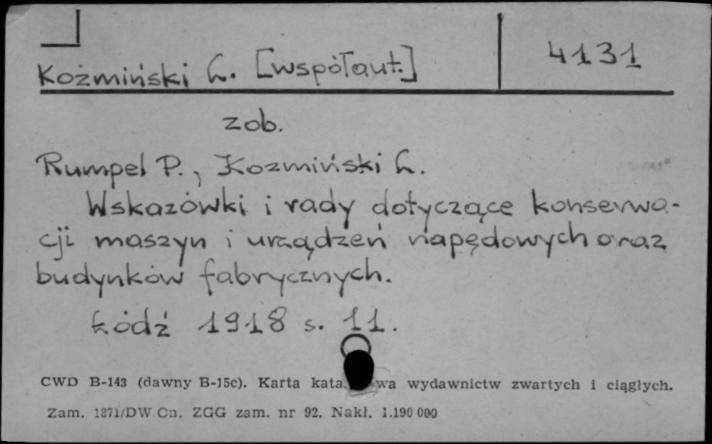 Koźmiński L. [współaut.]
4131
zob.
Rumpel P., Kozmiński L.
Wskazówki i rady dotyczące konserwa-
cji maszyn i urządzeń napędowych oraz
budynków fabrycznych.
Łódź 1918 s. 11.
CWD B-143 (dawny B-15c). Karta wydawnictw zwartych i ciągłych.
Zam. 1871/DW Cn. ZGG zam. nr 92. Nakł. 1.190 000